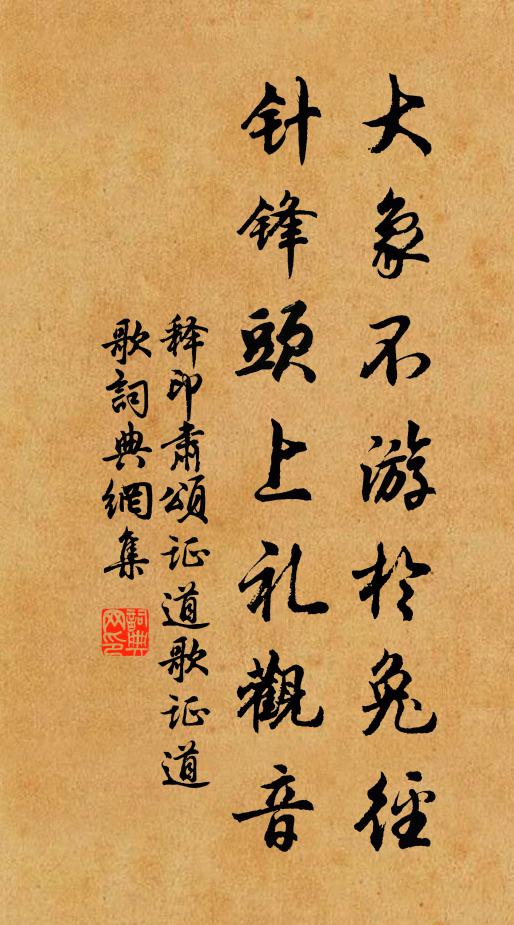 大象不游於兔徑
针锋頭上礼觀音
释印肃頌证道歌证道
歌詞典網集
詞典
网印